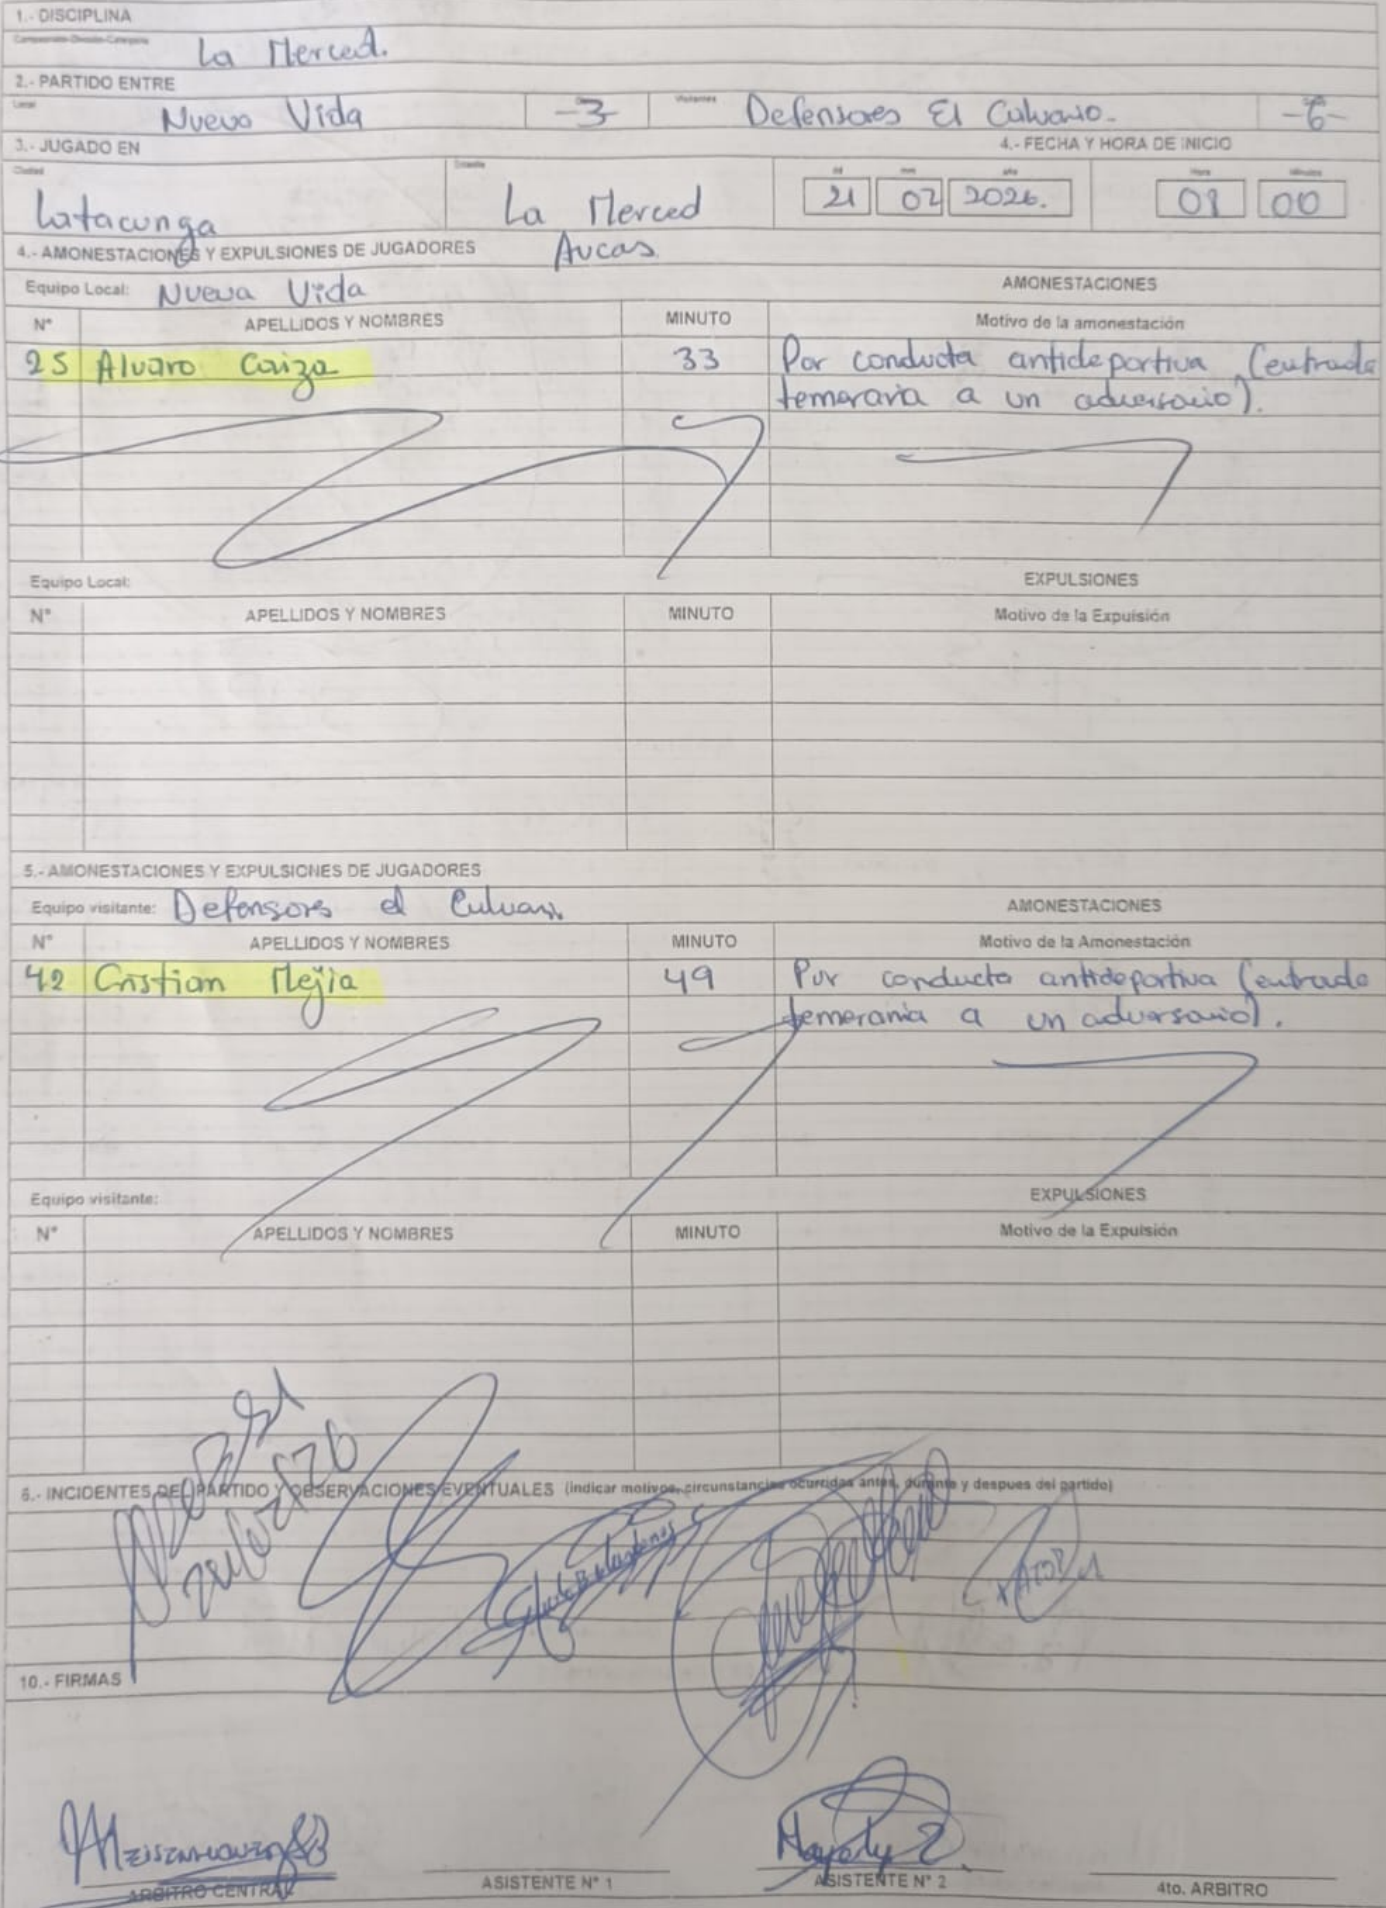 1.- DISCIPLINA
Campeonato-División-Categoría
La Merced.
2.- PARTIDO ENTRE
Local Nuevo Vida -3- Visitantes Defensores El Calvario. -6-
3.- JUGADO EN 4.- FECHA Y HORA DE INICIO
Ciudad Estadio dd mm año Hora Minutos
Latacunga La Merced 21 02 2026. 08 00
4.- AMONESTACIONES Y EXPULSIONES DE JUGADORES Aucas
Equipo Local: Nueva Vida AMONESTACIONES
N° APELLIDOS Y NOMBRES MINUTO Motivo de la amonestación
25 Alvaro Caiza 33 Por conducta antideportiva (entrada
temeraria a un adversario).
Equipo Local: EXPULSIONES
N° APELLIDOS Y NOMBRES MINUTO Motivo de la Expulsión
5.- AMONESTACIONES Y EXPULSIONES DE JUGADORES
Equipo visitante: Defensores el Calvario. AMONESTACIONES
N° APELLIDOS Y NOMBRES MINUTO Motivo de la Amonestación
42 Cristian Mejia 49 Por conducta antideportiva (entrada
temeraria a un adversario).
Equipo visitante: EXPULSIONES
N° APELLIDOS Y NOMBRES MINUTO Motivo de la Expulsión
6.- INCIDENTES DEL PARTIDO Y OBSERVACIONES EVENTUALES (indicar motivos, circunstancias ocurridas antes, durante y despues del partido)
10.- FIRMAS
ARBITRO CENTRAL ASISTENTE N° 1 ASISTENTE N° 2 4to. ARBITRO